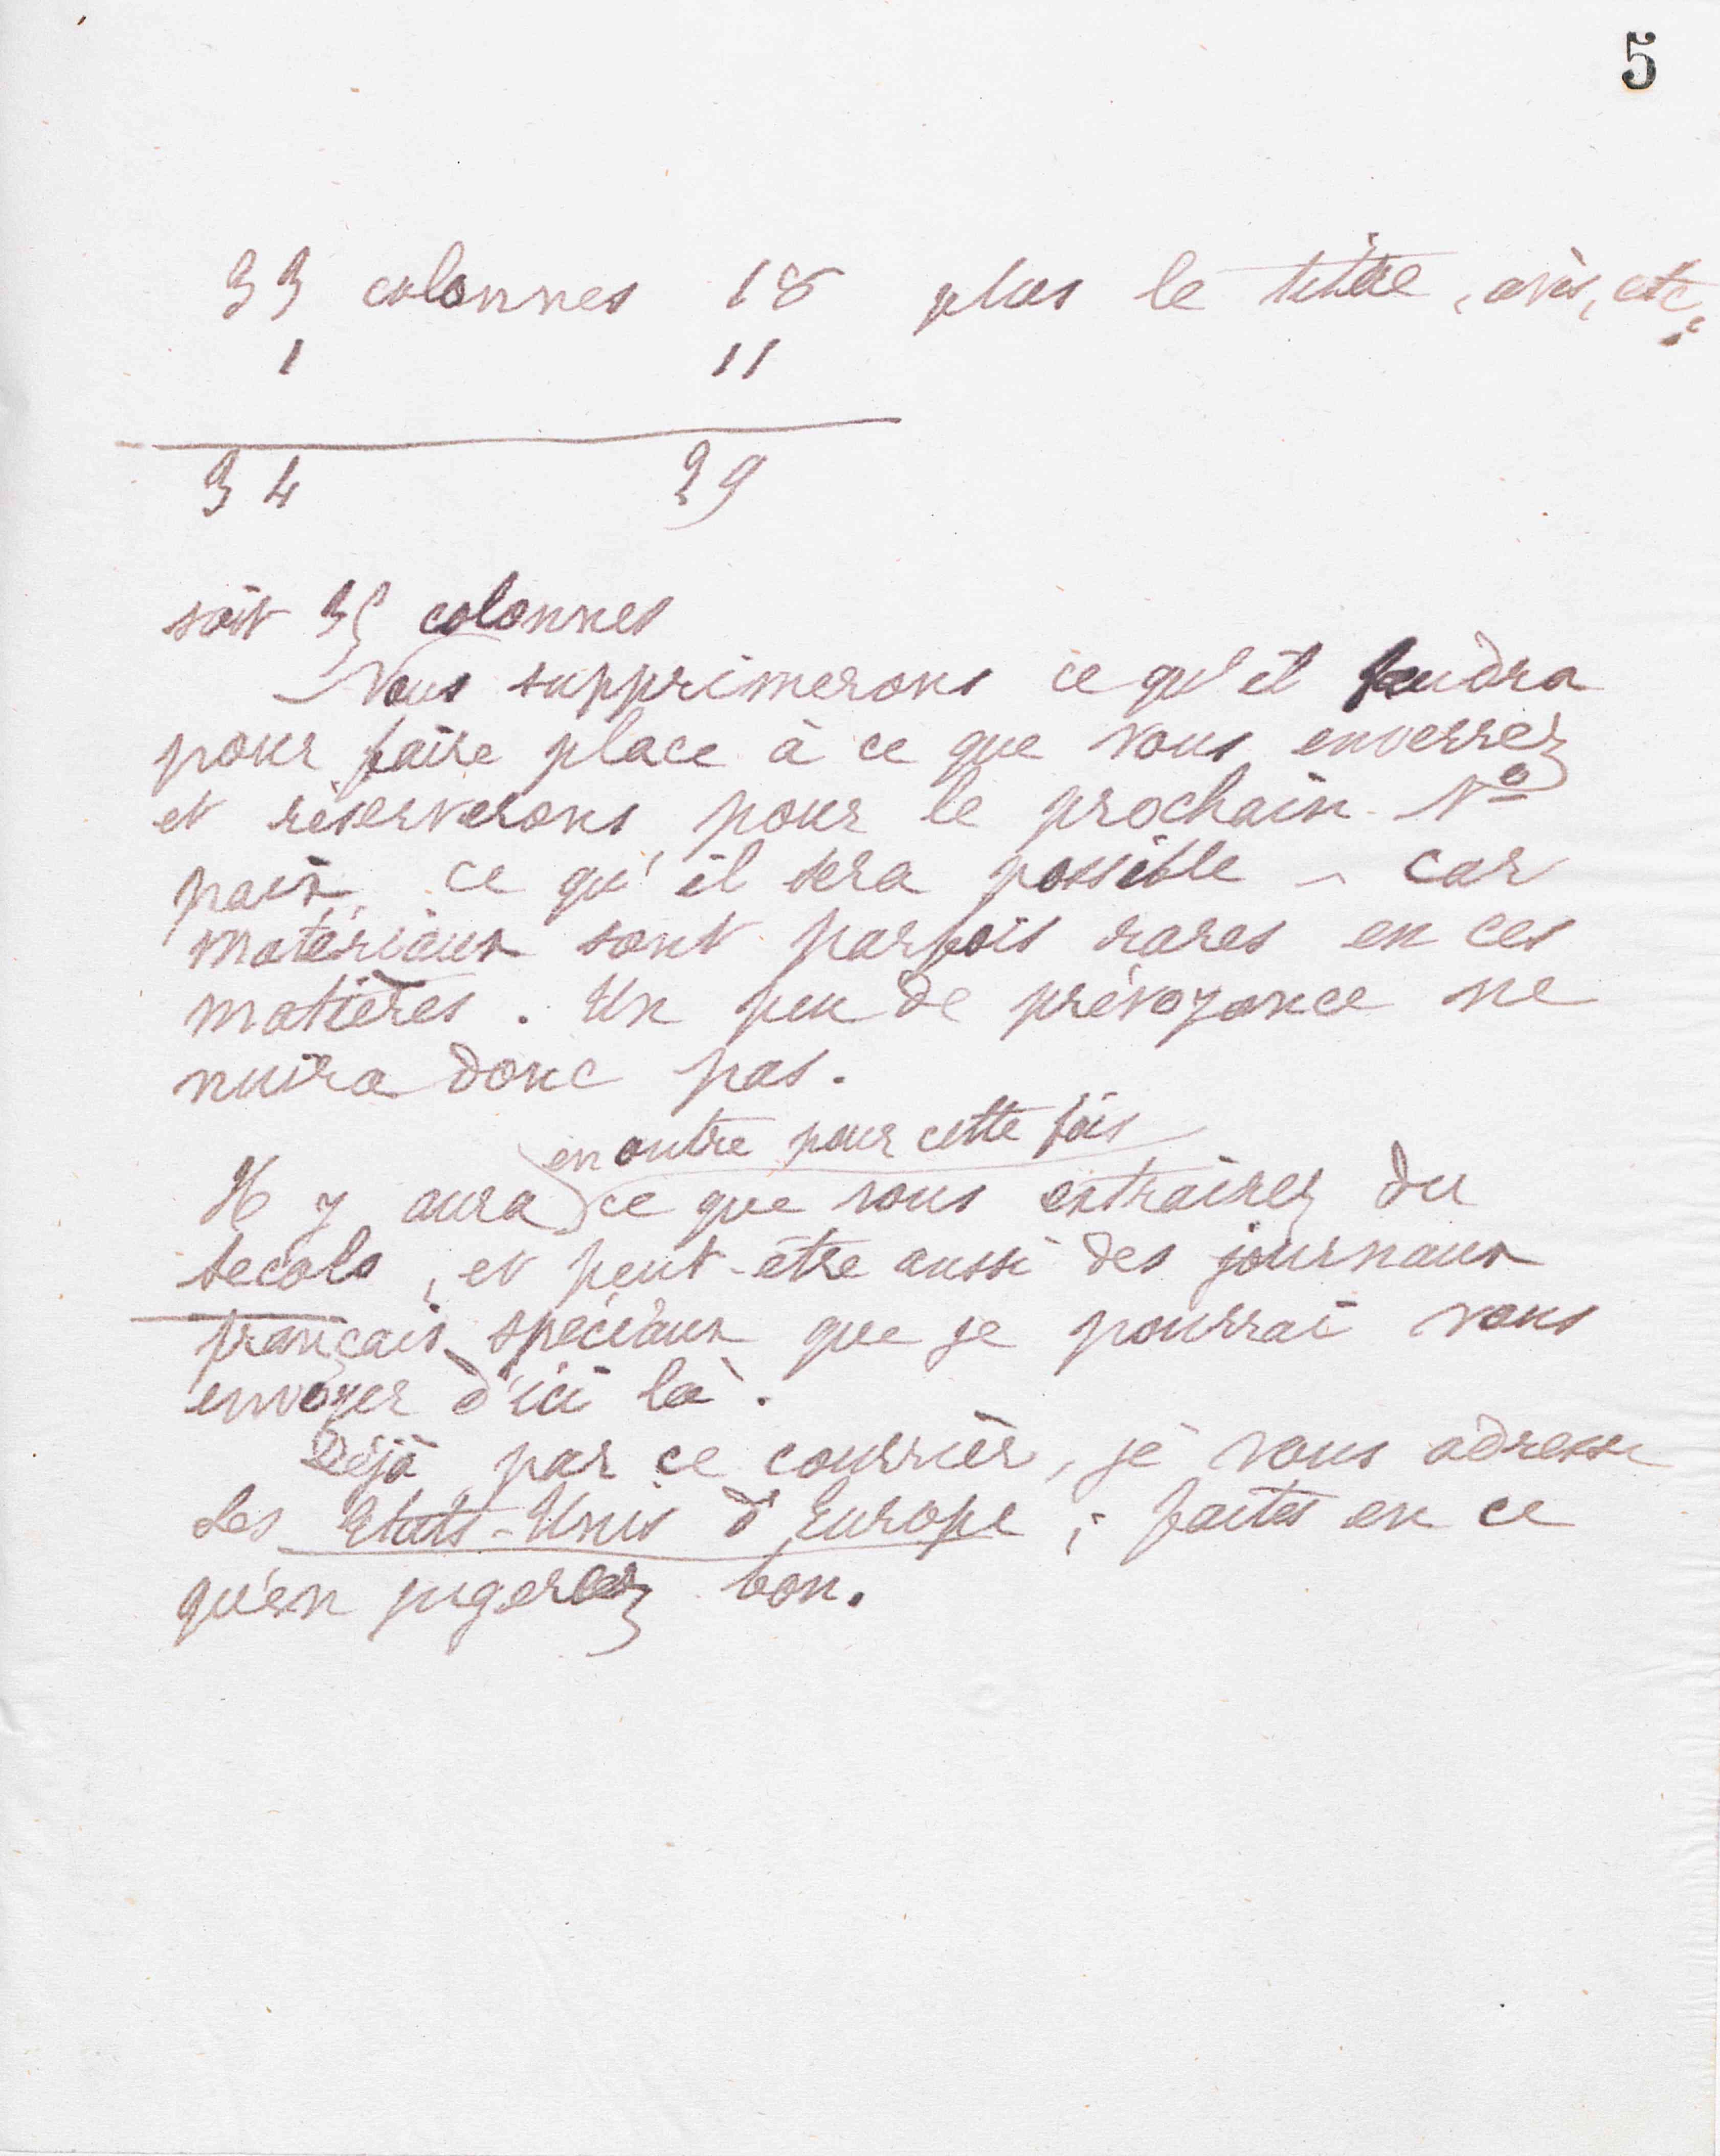 5
33 colonnes 18 plus le titre, avis, etc.
1 11
34 29
soit 35 colonnes
Nous supprimerons ce qu'il faudra
pour faire place à ce que vous enverrez
et réserverons, pour le prochain Nº
paix, ce qu'il sera possible – car
matériaux sont parfois rares en ces
matières. Un peu de prévoyance ne
nuira donc pas.
en outre pour cette fois
Il y aura ce que vous extrairez du
Secolo, et peut-être aussi des journaux
français spéciaux que je pourrai vous
envoyer d'ici là.
Déjà par ce courrier, je vous adresse
Les Etats-Unis d'Europe ; faites en ce
qu'en jugerez bon.